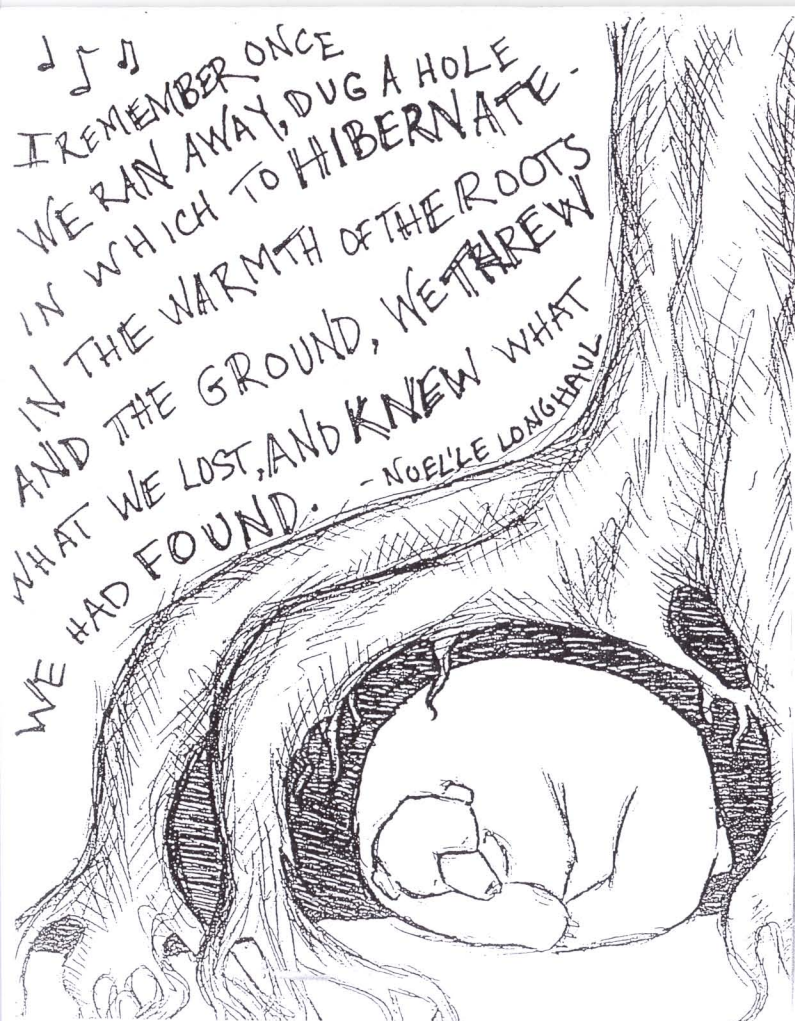 I REMEMBER ONCE
WE RAN AWAY, DUG A HOLE
IN WHICH TO HIBERNATE.
IN THE WARMTH OF THE ROOTS
AND THE GROUND, WE THREW
WHAT WE LOST, AND KNEW WHAT
WE HAD FOUND.
- NOEL'LE LONGHAUL